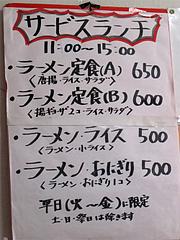 サービスランチ
11:00〜15:00
・ラーメン定食(A) 650
〈唐揚・ライス・サラダ〉
・ラーメン定食(B) 600
〈揚ギョーザ2コ・ライス・サラダ〉
・ラーメン・ライス 500
〈ラーメン・小ライス〉
・ラーメン・おにぎり 500
〈ラーメン・おにぎり1コ〉
平日(火〜金)に限定
土・日・祭日は除きます